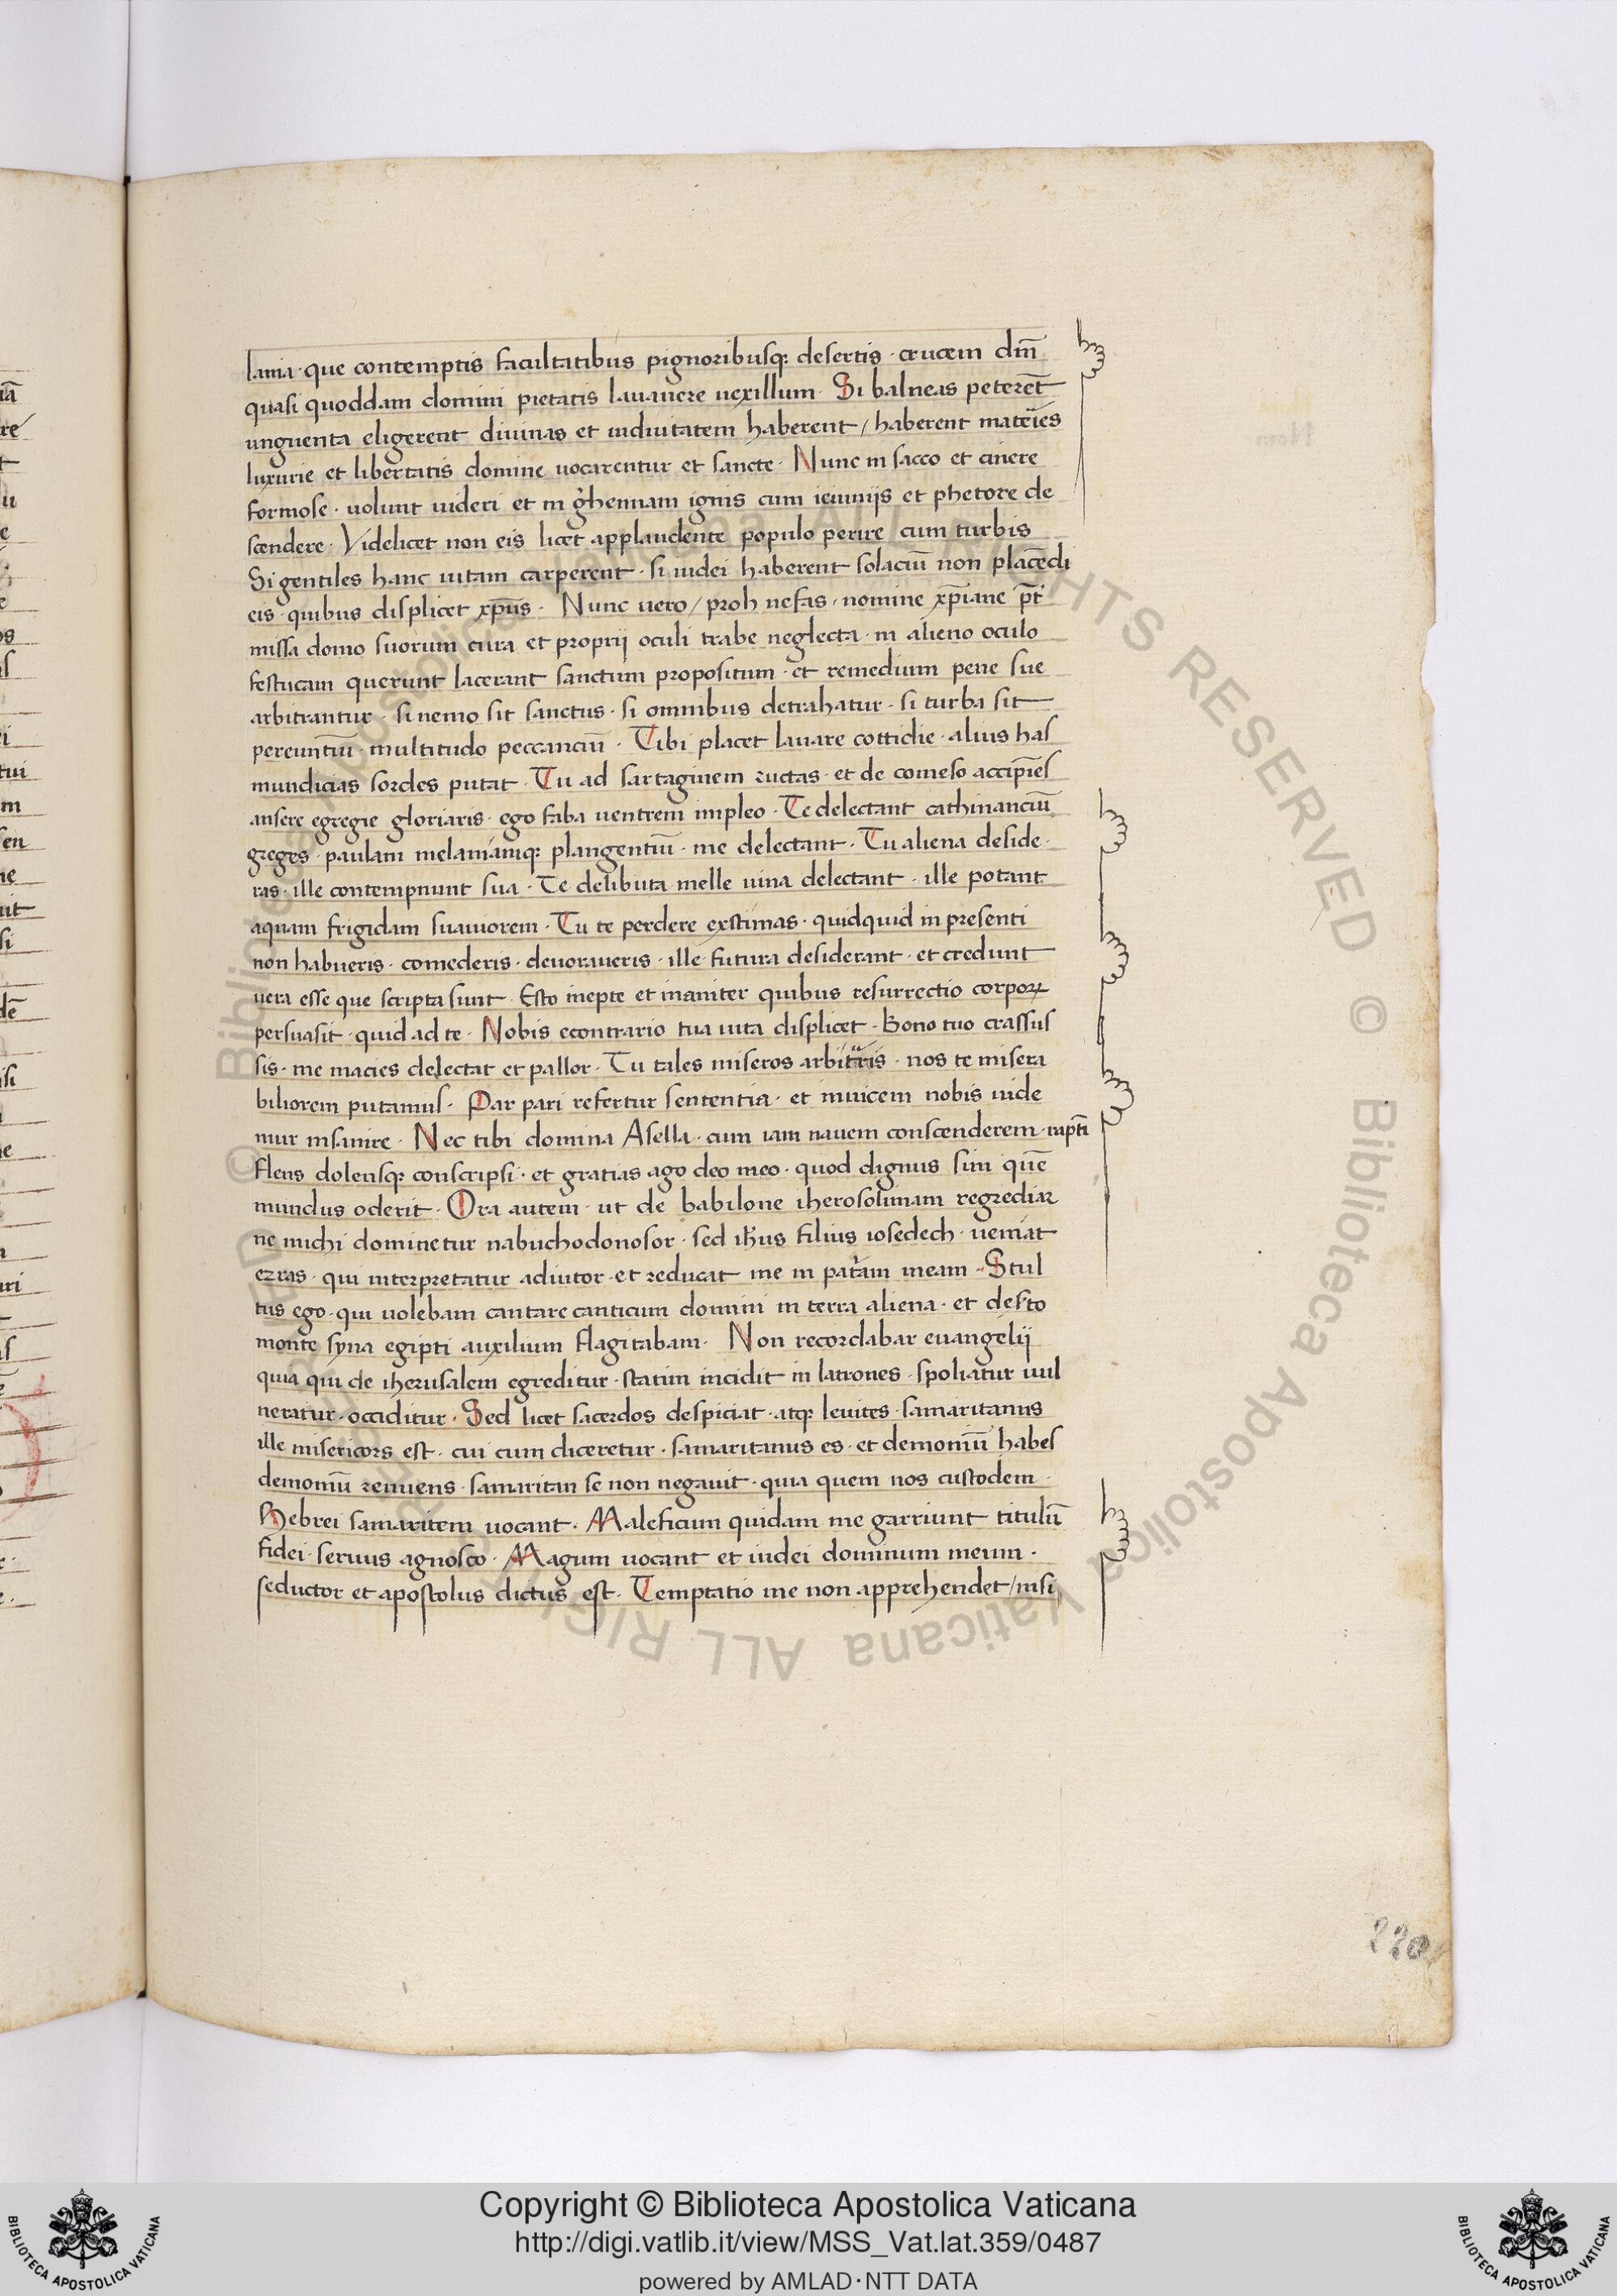 lania · que contemptis facultatibus pignoribusq; desertis · crucem dn̄i
quasi quoddam domini pietatis lauauere uexillum · Si balneas peterēt
unguenta eligerent diuinas et uiduitatem haberent / haberent mateı̈es
luxurie et libertatis domine uocarentur et sancte · Nunc in sacco et cinere
formose · uolunt uideri et in gehennam ignis cum ieiunijs et phetore de
scendere · Videlicet non eis licet applaudente populo perire cum turbis
Si gentiles hanc uitam carperent · si iudei haberent solaciū non placēdi
eis · quibus displicet xp̄us · Nunc uero / proh nefas · nomine xp̄iane p̄t
missa domo suorum cura et proprij oculi trabe neglecta · in alieno oculo
festucam querunt lacerant sanctum propositum · et remedium pene sue
arbitrantur · si nemo sit sanctus · si omnibus detrahatur · si turba sit
pereuntiū · multitudo peccanciū · Tibi placet lauare cottidie · alius has
mundicias sordes putat · Tu ad sartaginem ructas · et de comeso accip̄ies
ansere egregie gloriaris · ego faba uentrem impleo · Te delectant cathinanciū
greges · paulam melaniamq; plangentiū · me delectant · Tu aliena deside
ras · ille contempnunt sua · Te delibuta melle uina delectant · ille potant
aquam frigidam suauiorem · Tu te perdere exstimas · quidquid in presenti
non habueris · comederis · deuoraueris · ille futura desiderant · et credunt
uera esse que scripta sunt · Esto inepte et inaniter quibus resurrectio corpoꝝ
persuasit · quid ad te · Nobis econtrario tua uita displicet · Bono tuo crassus
sis · me macies delectat et pallor · Tu tales miseros arbitr̄is · nos te misera
biliorem putamus · Par pari refertur sententia · et inuicem nobis uide
mur insanire · Nec tibi domina Asella · cum iam nauem conscenderem · rapti
flens dolensq; conscripsi · et gratias ago deo meo · quod dignus sim quē
mundus oderit · Ora autem · ut de babilone iherosolimam regrediar
ne michi dominetur nabuchodonosor · sed ih̄us filius iosedech · ueniat
ezras · qui interpretatur adiutor · et reducat me in patr̄am meam · Stul
tus ego · qui uolebam cantare canticum domini in terra aliena · et deſto
monte syna egipti auxilium flagitabam · Non recordabar euangelij
quia qui de iherusalem egreditur · statim incidit in latrones · spoliatur uul
neratur · occiditur · Sed licet sacerdos despiciat · atq; leuites · samaritanus
ille misericors est · cui cum diceretur · samaritanus es · et demoniū habes
demoniū renuens · samaritan se non negauit · quia quem nos custodem
Hebrei samaritem uocant · Maleficum quidam me garriunt titulū
fidei · seruus agnosco · Magum uocant et iudei dominum meum ·
seductor et apostolus dictus est · Temptatio me non apprehendet / nisi
220
© Biblioteca Apostolica Vaticana ALL RIGHTS RESERVED
Copyright © Biblioteca Apostolica Vaticana
http://digi.vatlib.it/view/MSS_Vat.lat.359/0487
powered by AMLAD·NTT DATA
BIBLIOTECA APOSTOLICA VATICANA
BIBLIOTECA APOSTOLICA VATICANA